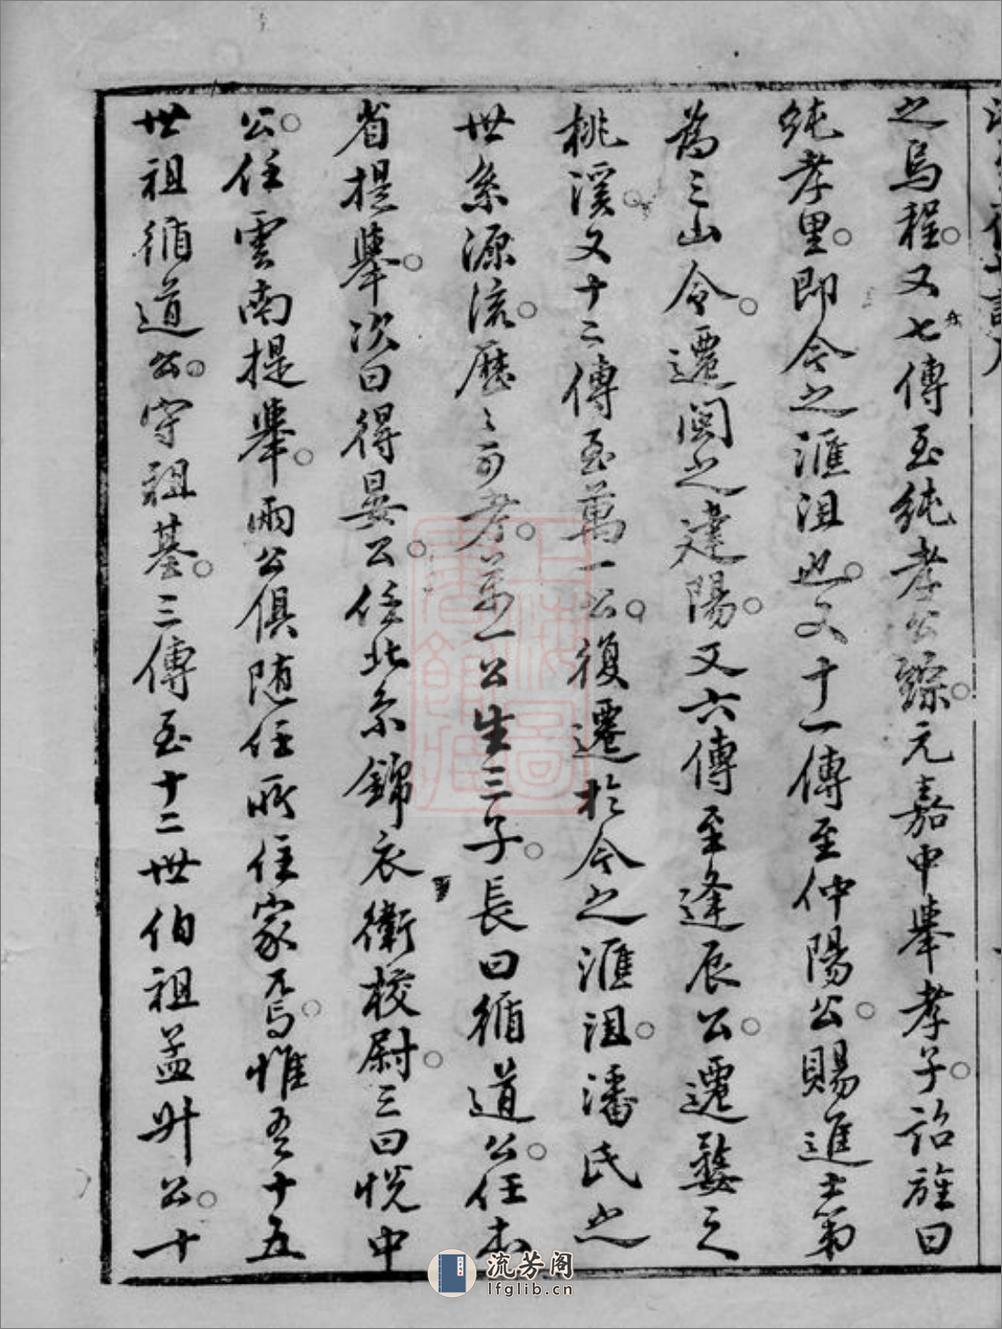 之烏程又七傳至純孝公綜元嘉中舉孝子詔旌曰
純孝里即今之滙沮也又十一傳至仲陽公賜進士第
為三山令遷閩之建陽又六傳至逢辰公遷婺之
桃溪又十二傳至萬一公復遷於今之滙沮潘氏之
世系源流歷〻可考萬一公生三子長曰循道公任本
省提舉次曰得晏公任北京錦衣衛校尉三曰悅中
公任雲南提舉兩公俱随任所住家焉惟吾十五
世祖循道公守祖基三傳至十二世伯祖孟昇公十
上海圖書館藏
流芳阁
lfglib.cn